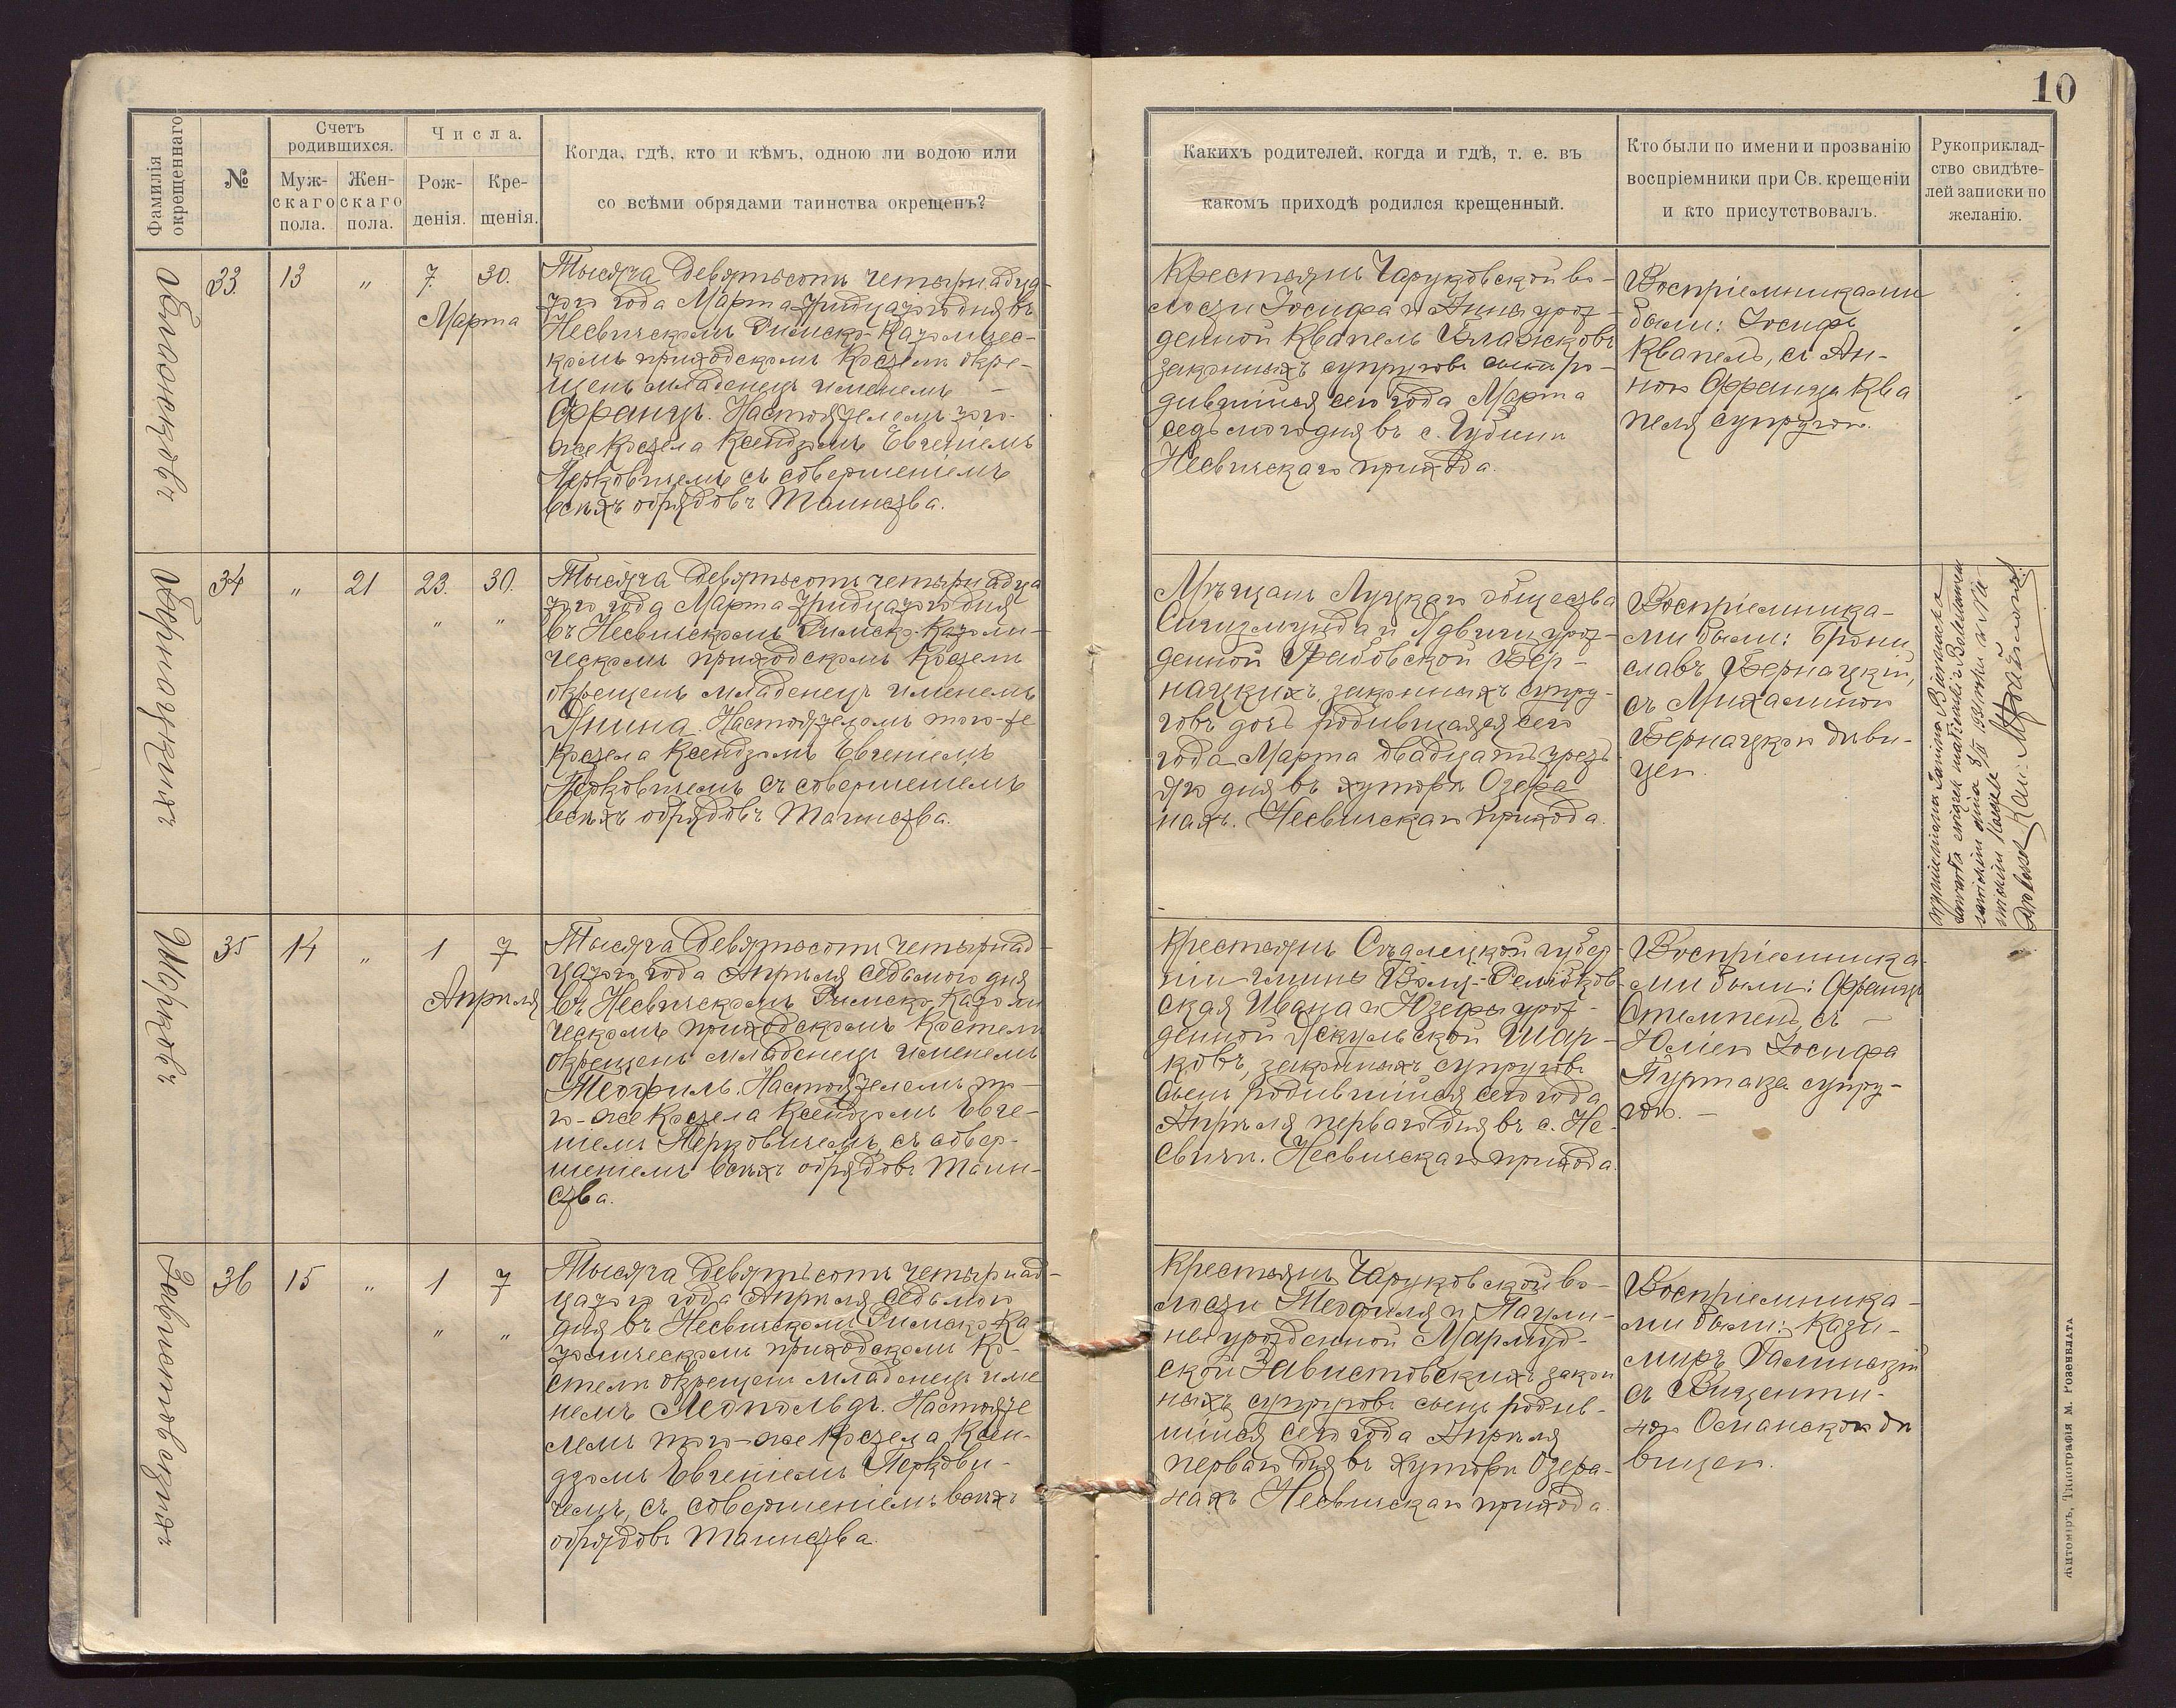 10
Фамилія окрещеннаго
№
Счетъ родившихся.
Муж-
скаго
пола.
Жен-
скаго
пола.
Числа.
Рож-
денія.
Кре-
щенія.
Когда, гдѣ, кто и кѣмъ, одною ли водою или
со всѣми обрядами таинства окрещенъ?
Какихъ родителей, когда и гдѣ, т. е. въ
какомъ приходѣ родился крещенный.
Кто были по имени и прозванію
воспріемники при Св. крещеніи
и кто присутствовалъ.
Рукоприклад-
ство свидѣте-
лей записки по
желанію.
33.
13
"
7.
30.
Марта
Тысяча девятьсотъ четырнадца-
таго года Марта тридцатаго дня въ
Несвичскомъ Римско-Католичес-
комъ приходскомъ Костелѣ окре-
щенъ младенецъ именемъ –
Францъ. Настоятелемъ того-
же Костела Ксендзомъ Евгеніемъ
Перковичемъ съ совершеніемъ
всѣхъ обрядовъ Таинства.
Крестьянъ Чаруковской во-
лости Іосифа и Анны урож-
денной Квапель
законныхъ супруговъ сынъ ро-
дившійся сего года Марта
седьмого дня въ с. Губинѣ
Несвичскаго прихода.
Воспріемниками
были: Іосифъ
Квапель, съ Ан-
ною Франца Ква
пеля супругою.
Бернацкихъ
34
"
21
23.
30.
"
"
Тысяча девятьсотъ четырнадца
таго года Марта тридцатаго дня
въ Несвичскомъ Римско-Католи-
ческомъ приходскомъ Костелѣ
окрещенъ младенецъ именемъ
Янина. Настоятелемъ того-же
Костела Ксендзомъ Евгеніемъ
Перковичемъ съ совершеніемъ
всѣхъ обрядовъ Таинства.
Мѣщанъ Луцкаго общества
Сигизмунда и Ядвиги урож-
денной Грабовской Бер-
нацкихъ законныхъ супру-
говъ дочь родившаяся сего
года Марта двадцать треть
яго дня въ хуторѣ Озера
нахъ. Несвичскаго прихода.
Воспріемника-
ми были: Брони
славъ Бернацкій,
съ Михалиною
Бернацкою дѣви-
цею.
Марковъ
35
14
"
1
7
Апрѣля
Тысяча девятьсотъ четырнад-
цатаго года Апрѣля седьмого дня
въ Несвичскомъ Римско-Католи
ческомъ приходскомъ Костелѣ
окрещенъ младенецъ именемъ
Теофиль. Настоятелемъ то-
го-же Костела Ксендзомъ Евге-
ніемъ Перковичемъ, съ совер-
шеніемъ всѣхъ обрядовъ Таин-
ства.
Крестьянъ Сѣдлецкой губер-
ніи гмины
ская Ивана и Юзефы урож-
денной
ковъ, законныхъ супруговъ
сынъ родившійся сего года
Апрѣля перваго дня въ с. Не-
свичи. Несвичскаго прихода.
Воспріемника-
ми были: Францъ
Стемпень, съ –
Юліею Іосифа
супру-
гою. –
Завистовскихъ
36
15
"
1
7
"
"
Тысяча девятьсотъ четырнад-
цатаго года Апрѣля седьмого
дня въ Несвичскомъ Римско-Ка
толическомъ приходскомъ Ко-
стелѣ окрещенъ младенецъ име
немъ Леопольдъ. Настояте
лемъ того-же Костела Ксен-
дзомъ Евгеніемъ Перкови-
чемъ, съ совершеніемъ всѣхъ
обрядовъ Таинства.
Крестьянъ Чаруковской во-
лости Теофиля и Паули-
ны урожденной
ской Завистовскихъ закон
ныхъ супруговъ сынъ родив-
шійся сего года Апрѣля
перваго дня въ хуторѣ Озера-
нахъ Несвичскаго прихода.
Воспріемника-
ми были: Кази-
миръ Галинскій
съ Викенти-
ною дѣ
вицею.
Житоміръ, Типографія М. Розенблата